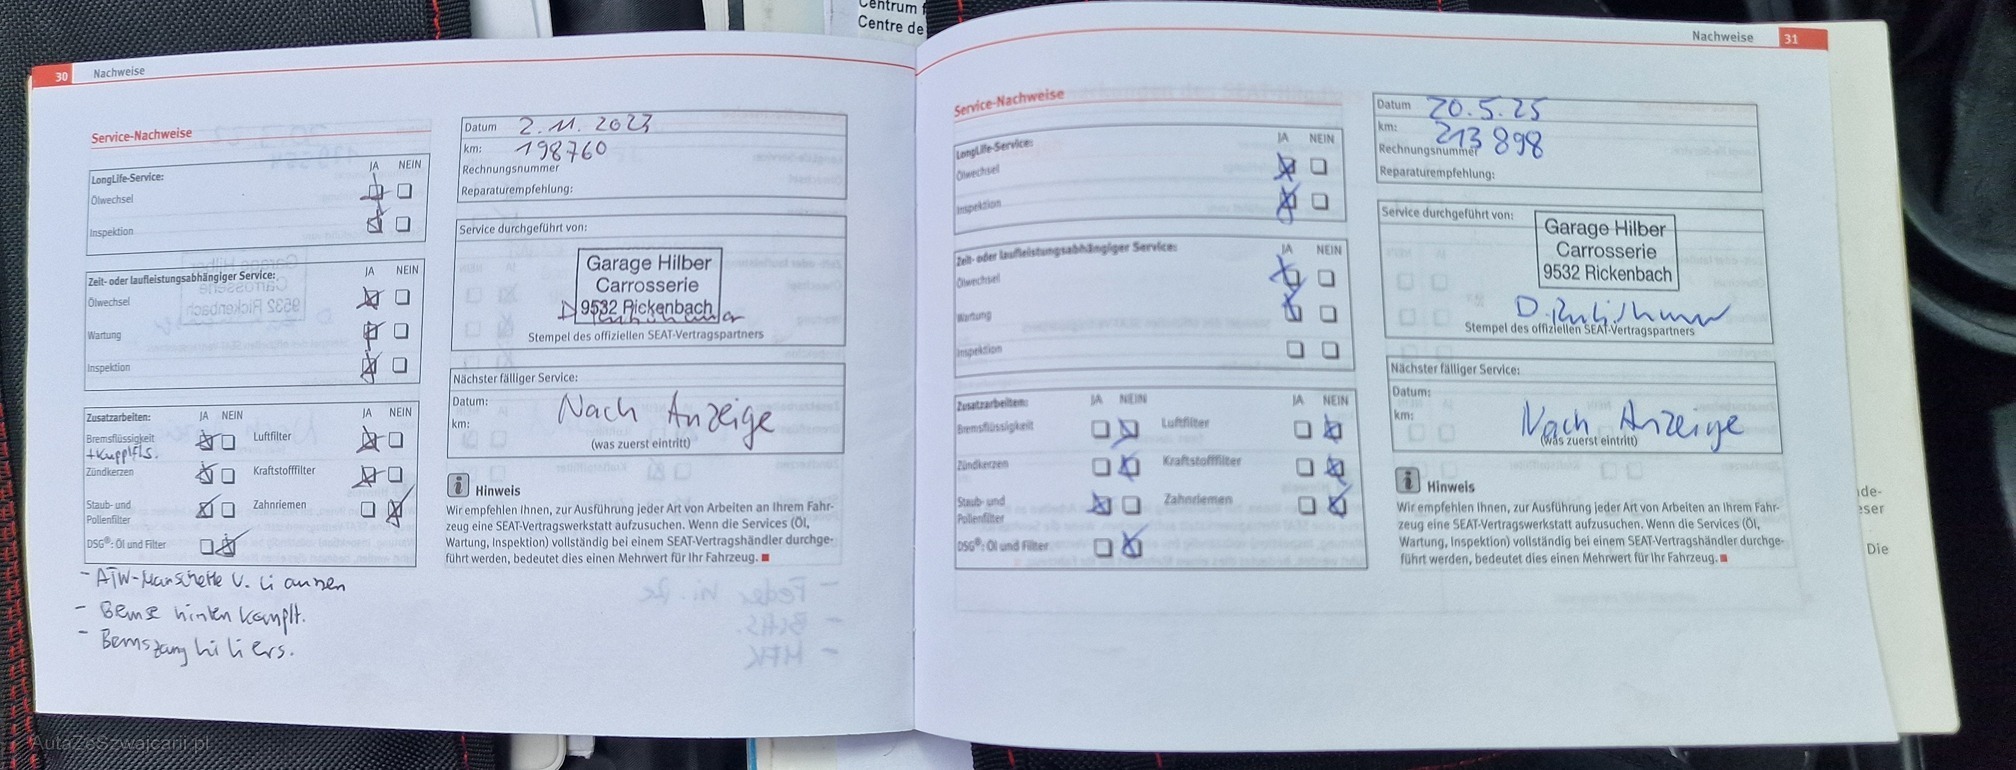 Centrum f
Centre de
30 Nachweise
Service-Nachweise
JA NEIN
LongLife-Service:
Ölwechsel
Inspektion
JA NEIN
Zeit- oder laufleistungsabhängiger Service:
Ölwechsel
Wartung
Inspektion
Zusatzarbeiten: JA NEIN JA NEIN
Bremsflüssigkeit Luftfilter
+Kupplfls.
Zündkerzen Kraftstofffilter
Staub- und Zahnriemen
Pollenfilter
DSG®: Öl und Filter
- ATW-Manschette v. li aussen
- Bemse hinten komplt.
- Bemszang hi li ers.
Datum 2. 11. 2023
km: 198760
Rechnungsnummer
Reparaturempfehlung:
Service durchgeführt von:
Garage Hilber
Carrosserie
9532 Rickenbach
Stempel des offiziellen SEAT-Vertragspartners
Nächster fälliger Service:
Datum: Nach Anzeige
km:
(was zuerst eintritt)
i Hinweis
Wir empfehlen Ihnen, zur Ausführung jeder Art von Arbeiten an Ihrem Fahr-
zeug eine SEAT-Vertragswerkstatt aufzusuchen. Wenn die Services (Öl,
Wartung, Inspektion) vollständig bei einem SEAT-Vertragshändler durchge-
führt werden, bedeutet dies einen Mehrwert für Ihr Fahrzeug.
Nachweise 31
Service-Nachweise
JA NEIN
LongLife-Service:
Ölwechsel
Inspektion
JA NEIN
Zeit- oder laufleistungsabhängiger Service:
Ölwechsel
Wartung
Inspektion
Zusatzarbeiten: JA NEIN JA NEIN
Bremsflüssigkeit Luftfilter
Zündkerzen Kraftstofffilter
Staub- und Zahnriemen
Pollenfilter
DSG®: Öl und Filter
Datum 20.5.25
km: 213 898
Rechnungsnummer
Reparaturempfehlung:
Service durchgeführt von:
Garage Hilber
Carrosserie
9532 Rickenbach
Stempel des offiziellen SEAT-Vertragspartners
Nächster fälliger Service:
Datum:
km: Nach Anzeige
(was zuerst eintritt)
i Hinweis
Wir empfehlen Ihnen, zur Ausführung jeder Art von Arbeiten an Ihrem Fahr-
zeug eine SEAT-Vertragswerkstatt aufzusuchen. Wenn die Services (Öl,
Wartung, Inspektion) vollständig bei einem SEAT-Vertragshändler durchge-
führt werden, bedeutet dies einen Mehrwert für Ihr Fahrzeug.
Die
AutaZeSzwajcarii.pl